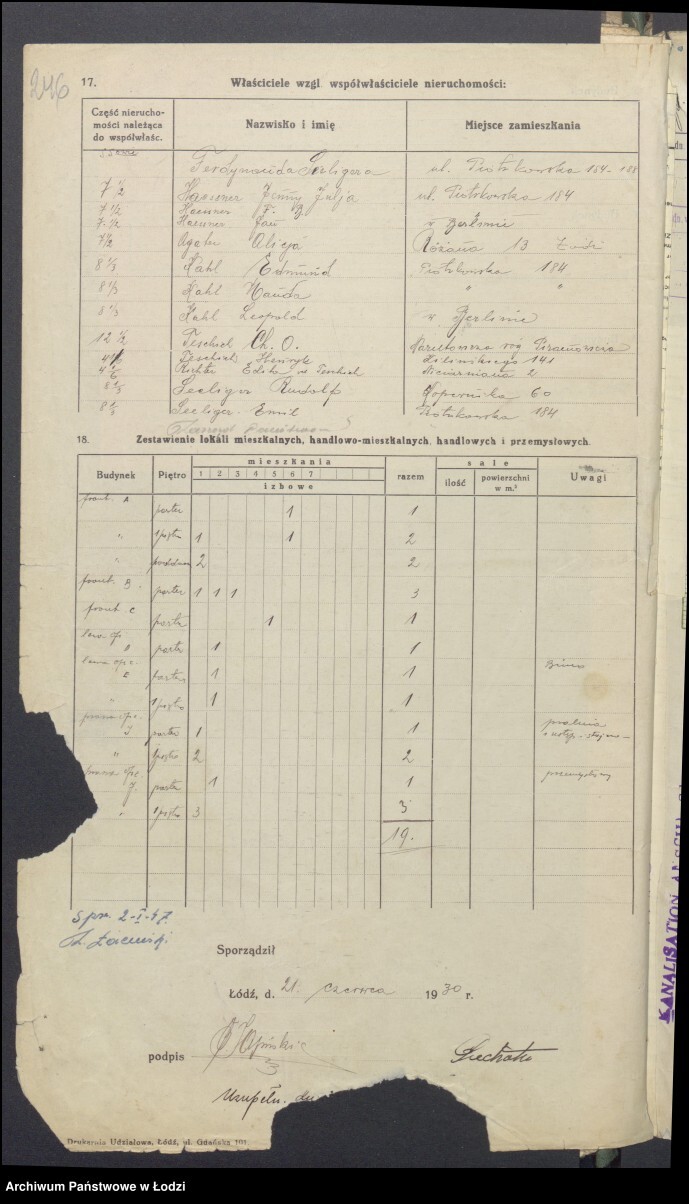 246
17. Właściciele wzgl. współwłaściciele nieruchomości:
Część nierucho-
mości należąca
do współwłaśc.
Nazwisko i imię
Miejsce zamieszkania
Ferdynanda Seeligera ul. Piotrkowska 184-188
7 ½ Haeusner Jenny Julja ul. Piotrkowska 184
7 ½ Haeusner
7 ½ Haeusner Jan w Berlinie
7 ½ Agater Alicja Różana 13 Łodzi
8 ⅓ Kahl Edmund Piotrkowska 184
8 ⅓ Kahl Wanda " "
8 ⅓ Kahl Leopold w Berlinie
12 ½ Teschich Ch. O.
Teschich Henryk Kilińskiego 141
Edith
8 ⅓ Seeliger Rudolf Kopernika 60
8 ⅓ Seeliger Emil Piotrkowska 184
18. Zestawienie lokali mieszkalnych, handlowo-mieszkalnych, handlowych i przemysłowych.
Budynek Piętro mieszkania razem sale Uwagi
1 2 3 4 5 6 7
izbowe
ilość powierzchni w m.²
front. A parter 1 1
" 1 piętro 1 1 2
" poddasze 2 2
front. B. parter 1 1 1 3
front C parter 1 1
lewa of. D parter 1 1
lewa ofic. E parter 1 1 Biuro
" 1 piętro 1 1
prawa ofic. I parter 1 1 pralnia
" 1 piętro 2 2
prawa ofic J. parter 1 1 przemysłowy
" 1 piętro 3 3
19.
Spr. 2-I-47.
Sporządził
Łódź, d. 21. czerwca 1930 r.
podpis
Uzupełn.
Drukarnia Udziałowa, Łódź, ul. Gdańska 101.
KANALISATION
Archiwum Państwowe w Łodzi